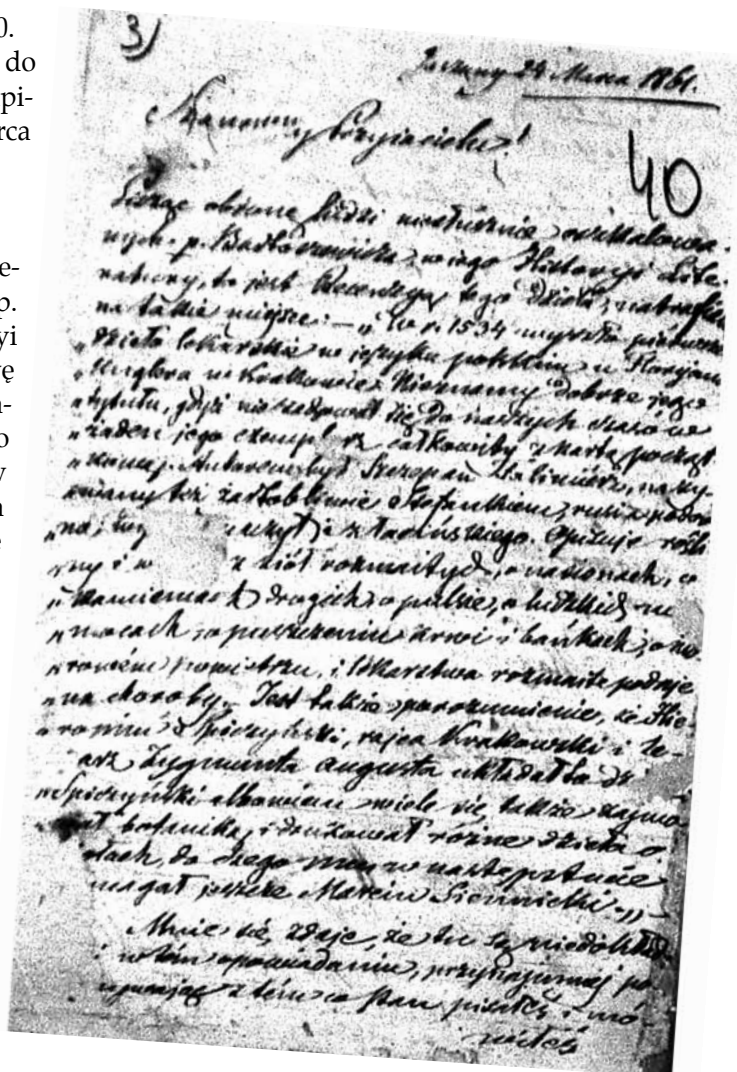 0.
do
pi-
rca
e-
p.
yi
ę
o
y
3)
24 Marca 1861.
Szanowny Przyjacielu!
40
Pisząc obronę
p. Bartoszewicza w jego Historyi Lite-
ratury, to jest Recenzyą tego dzieła,
na takie miejsce: — „W r. 1534 wyszło pierwsze
„dzieło lekarskie w języku polskim u Floryana
„Unglera w Krakowie. Nieznamy dobrze jego
„tytułu, gdyż nie zachował się do naszych czasów
„żaden jego exempl rz całkowity z kartą począt
„kową. Autorem był Szczepan Falimierz, nazy-
„wany też żartobliwie Stefankiem,
z łacińskiego. Opisuje rośli
„ny i w z ziół rozmaitych, o nasionach, o
„kamieniach drogich, o pulsie, o ludzkich nie
„mocach, o puszczeniu krwi i bańkach, o
powietrzu, i lekarstwa rozmaite podaje
„na choroby. Jest także porozumienie, że Hie
„ronim Spiczyński, rajca Krakowski i le-
arz Zygmunta Augusta układał to dz
„Spiczyński albowiem wiele się także zajmo
ał botaniką, i drukował różne dzieła o
do czego mu w następstwie
magał jeszcze Marcin Siennicki.„
Mnie się zdaje, że tu są
w tém opowiadaniu, przynajmniej po
z tém co Pan pisałeś i mó-
wiłeś